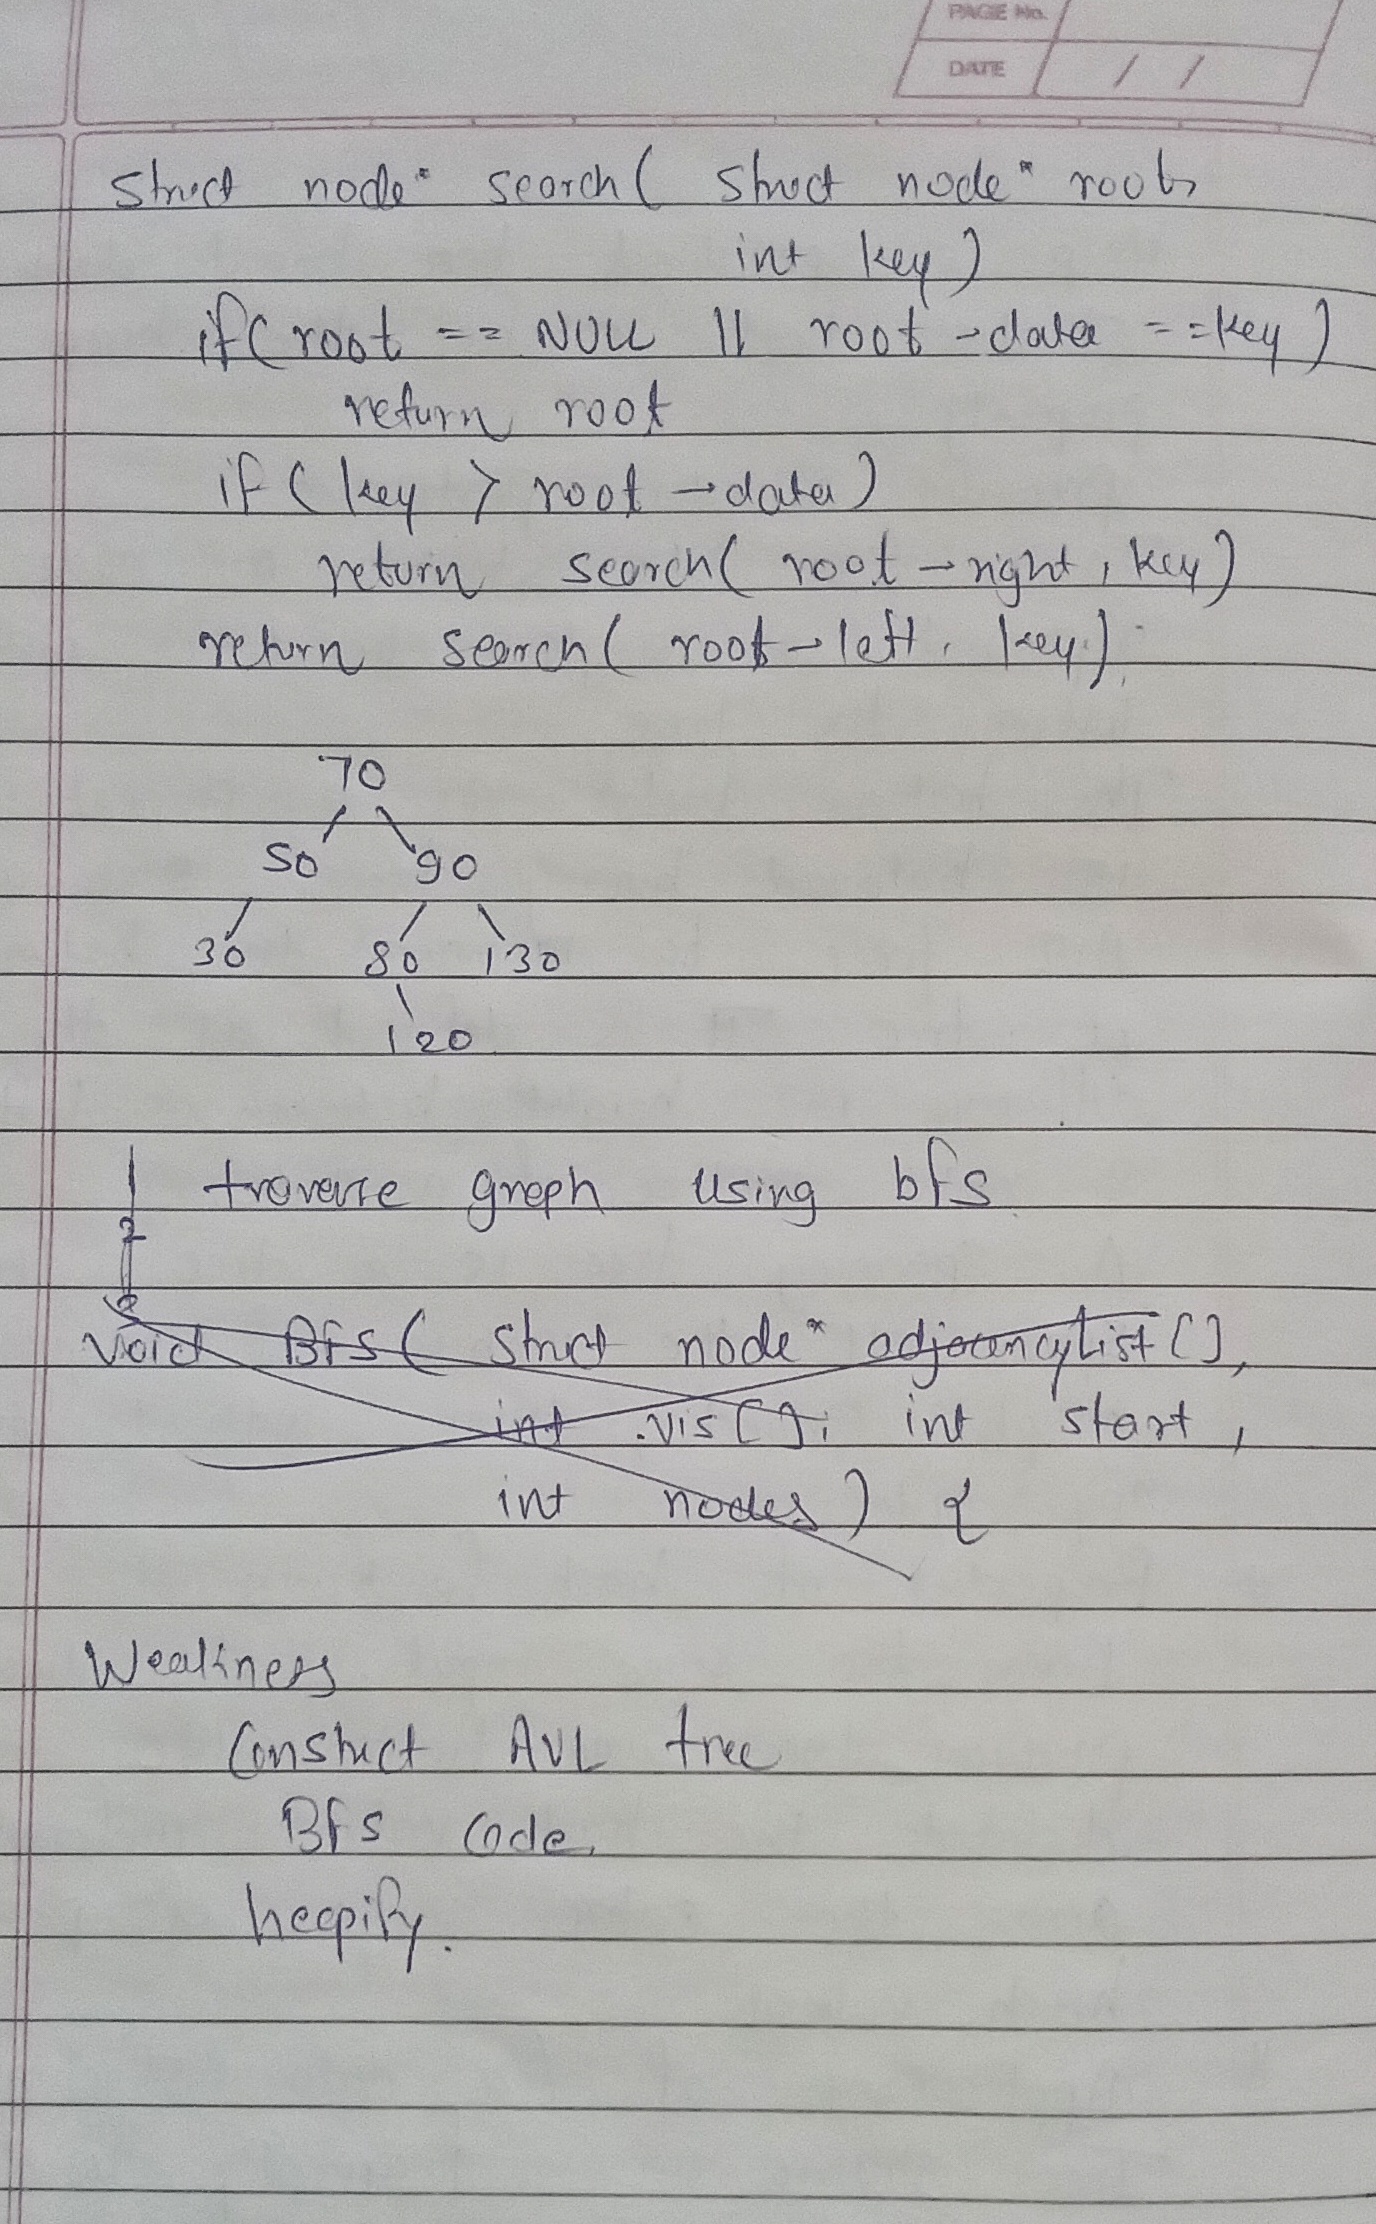 PAGE No.
DATE / /
struct node* search( struct node* root,
int key)
if( root == NULL || root → data == key )
return root
if ( key > root → data )
return search( root → right , key )
return search( root → left , key );
70
50 90
30 80 130
120
1 traverse graph using bfs
2
void Bfs( struct node* adjacencylist[],
int vis[], int start ,
int nodes ) {
Weakness
Construct AVL tree
Bfs code.
heapify.